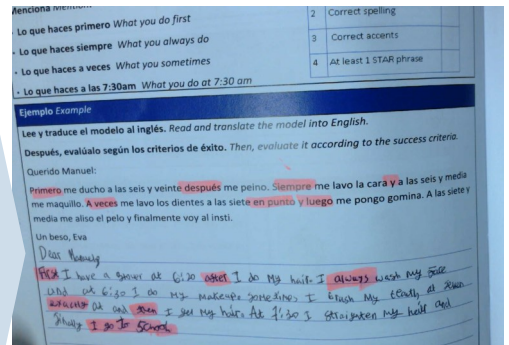 Menciona
· Lo que haces primero What you do first
· Lo que haces siempre What you always do
· Lo que haces a veces What you sometimes
· Lo que haces a las 7:30am What you do at 7:30 am
2 Correct spelling
3 Correct accents
4 At least 1 STAR phrase
Ejemplo Example
Lee y traduce el modelo al inglés. Read and translate the model into English.
Después, evalúalo según los criterios de éxito. Then, evaluate it according to the success criteria.
Querido Manuel:
Primero me ducho a las seis y veinte después me peino. Siempre me lavo la cara y a las seis y media
me maquillo. A veces me lavo los dientes a las siete en punto y luego me pongo gomina. A las siete y
media me aliso el pelo y finalmente voy al insti.
Un beso, Eva
Dear
First I have a at 6:20 after I do my hair. I always wash my face
and at 6:30 I do my makeup sometimes I brush my at
exactly at and then I gel my hair. At 7:30 I straighten my hair and
I go to school